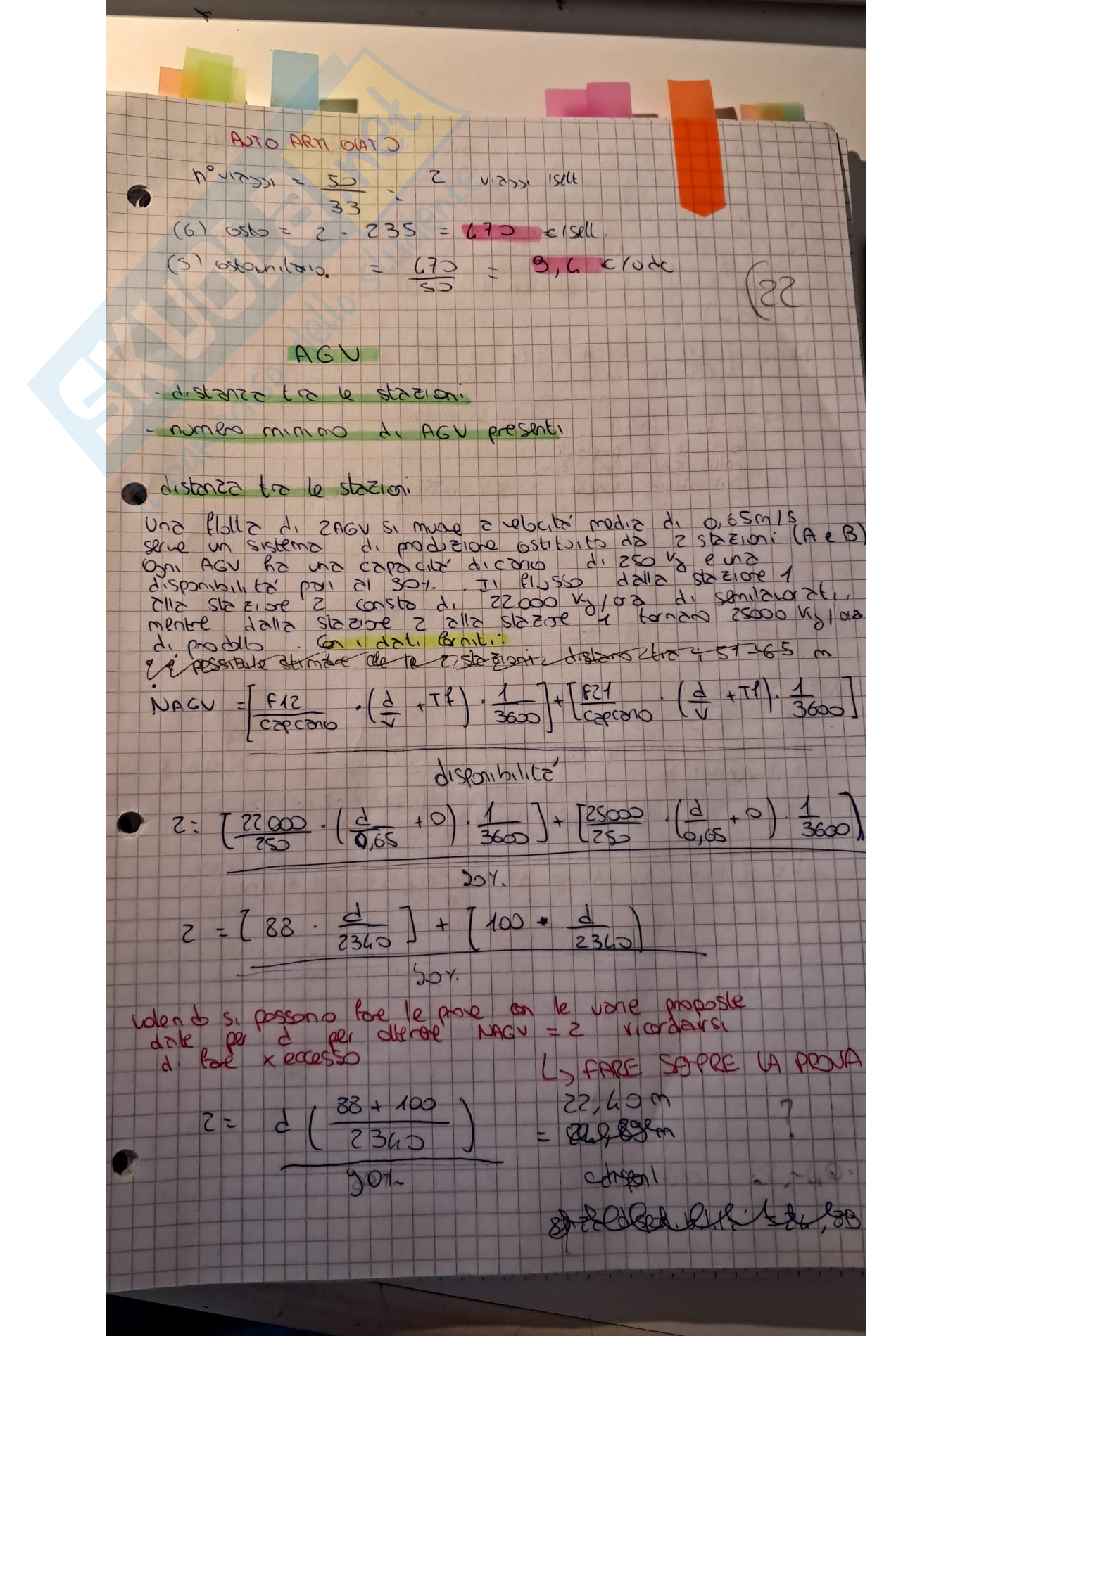 AUTO ARTICOLATO
n° viaggi = 50/33 = 2 viaggi/sett
(4) costo = 2 · 235 = 470 €/sett.
(5) costo unitario = 470/50 = 9,4 €/udc
22
AGV
- distanza tra le stazioni
- numero minimo di AGV presenti
distanza tra le stazioni
Una flotta di 2AGV si muove a velocità media di 0,65m/s
serve un sistema di produzione costituito da 2 stazioni (A e B)
ogni AGV ha una capacità di carico di 250 kg e una
disponibilità pari al 90%. Il flusso dalla stazione 1
alla stazione 2 consta di 22000 kg/ora di semilavorati,
mentre dalla stazione 2 alla stazione 1 tornano 25000 kg/ora
di prodotto. Con i dati forniti:
è possibile stimare che le 2 stazioni distano tra 4-57-65 m
NAGV = [F12/capcarico · (d/v + Tf) · 1/3600] + [F21/capcarico · (d/v + Tf) · 1/3600]
disponibilità
2 = [22000/250 · (d/0,65 + 0) · 1/3600] + [25000/250 · (d/0,65 + 0) · 1/3600]
90%
2 = [88 · d/2340] + [100 · d/2340]
90%
volendo si possono fare le prove con le varie proposte
date per d per ottenere NAGV = 2 ricordarsi
di fare x eccesso
↳ FARE SEMPRE LA PROVA
22,40 m ?
2 = d (88 + 100/2340) =
90%